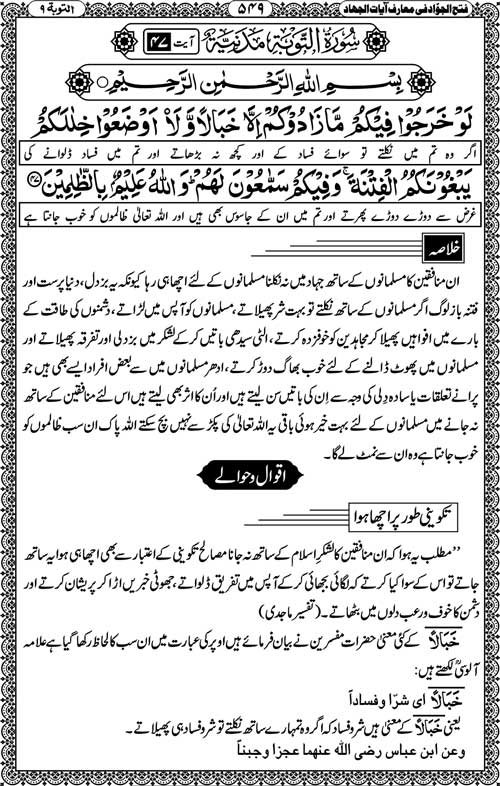 فتح الجوّاد فی معارف آیات الجہاد ۵۴۹ التوبة ۹
سُورَةُ التَّوْبَةِ مَدَنِيَّةٌ آیت ۴۷
بِسْمِ اللهِ الرَّحْمٰنِ الرَّحِيْمِ
لَوْ خَرَجُوْا فِيْكُمْ مَّا زَادُوْكُمْ اِلَّا خَبَالًا وَّلَاْ اَوْضَعُوْا خِلٰلَكُمْ
اگر وہ تم میں نکلتے تو سوائے فساد کے اور کچھ نہ بڑھاتے اور تم میں فساد ڈلوانے کی
يَبْغُوْنَكُمُ الْفِتْنَةَ ۚ وَفِيْكُمْ سَمّٰعُوْنَ لَهُمْ ؕ وَاللهُ عَلِيْمٌۢ بِالظّٰلِمِيْنَ ﴿۴۷﴾
غرض سے دوڑے دوڑے پھرتے اور تم میں ان کے جاسوس بھی ہیں اور اللہ تعالیٰ ظالموں کو خوب جانتا ہے
خلاصہ
ان منافقین کا مسلمانوں کے ساتھ جہاد میں نہ نکلنا مسلمانوں کے لئے اچھا ہی رہا کیونکہ یہ بزدل، دنیا پرست اور
فتنہ باز لوگ اگر مسلمانوں کے ساتھ نکلتے تو بہت شر پھیلاتے، مسلمانوں کو آپس میں لڑاتے، دشمنوں کی طاقت کے
بارے میں افواہیں پھیلا کر مجاہدین کو خوفزدہ کرتے، الٹی سیدھی باتیں کر کے لشکر میں بزدلی اور تفرقہ پھیلاتے اور
مسلمانوں میں پھوٹ ڈالنے کے لئے خوب بھاگ دوڑ کرتے، ادھر مسلمانوں میں سے بعض افراد ایسے بھی ہیں جو
پرانے تعلقات یا سادہ دِلی کی وجہ سے اِن کی باتیں سن لیتے ہیں اور اُن کا اثر بھی لیتے ہیں اس لئے منافقین کے ساتھ
نہ جانے میں مسلمانوں کے لئے بہت خیر ہوئی باقی یہ اللہ تعالیٰ کی پکڑ سے نہیں بچ سکتے اللہ پاک ان سب ظالموں کو
خوب جانتا ہے وہ ان سے نمٹ لے گا۔
اقوال و حوالے
تکوینی طور پر اچھا ہوا
’’مطلب یہ ہوا کہ ان منافقین کا لشکرِ اسلام کے ساتھ نہ جانا مصالح تکوینی کے اعتبار سے بھی اچھا ہی ہوا یہ ساتھ
جاتے تو اس کے سوا کیا کرتے کہ لگائی بجھائی کر کے آپس میں تفریق ڈلواتے، جھوٹی خبریں اڑا کر پریشان کرتے اور
دشمن کا خوف و رعب دلوں میں بٹھاتے۔ (تفسیر ماجدی)
خَبَالاً کے کئی معنیٰ حضرات مفسرین نے بیان فرمائے ہیں اوپر کی عبارت میں ان سب کا لحاظ رکھا گیا ہے علامہ
آلوسیؒ لکھتے ہیں:
خَبَالاً ای شرّا و فساداً
یعنی خَبَالاً کے معنیٰ ہیں شر و فساد کہ اگر وہ تمہارے ساتھ نکلتے تو شر و فساد ہی پھیلاتے۔
وعن ابن عباس رضی الله عنهما عجزا وجبناً